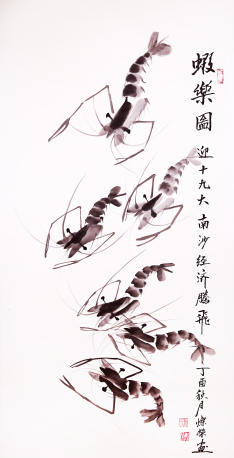 蝦樂圖
迎十九大南沙经济腾飛
丁酉秋月燦傑画